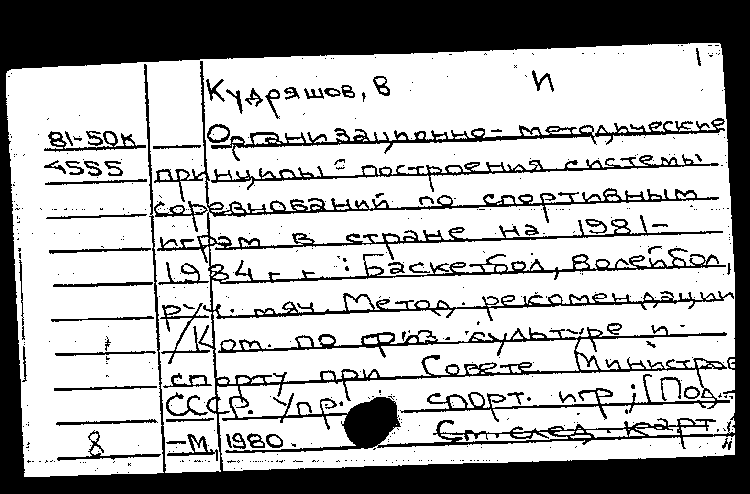 Кудряшов, В И
81-50к Организационно-методические
4555 принципы построения системы
соревнований по спортивным
играм в стране на 1981-
1984 г г : Баскетбол, волейбол,
руч. мяч. Метод. рекомендации
/ Ком. по физ. культуре и
спорту при Совете Министров
СССР. Упр. спорт. игр ; [Под-
8 -М, 1980. См. след. карт.